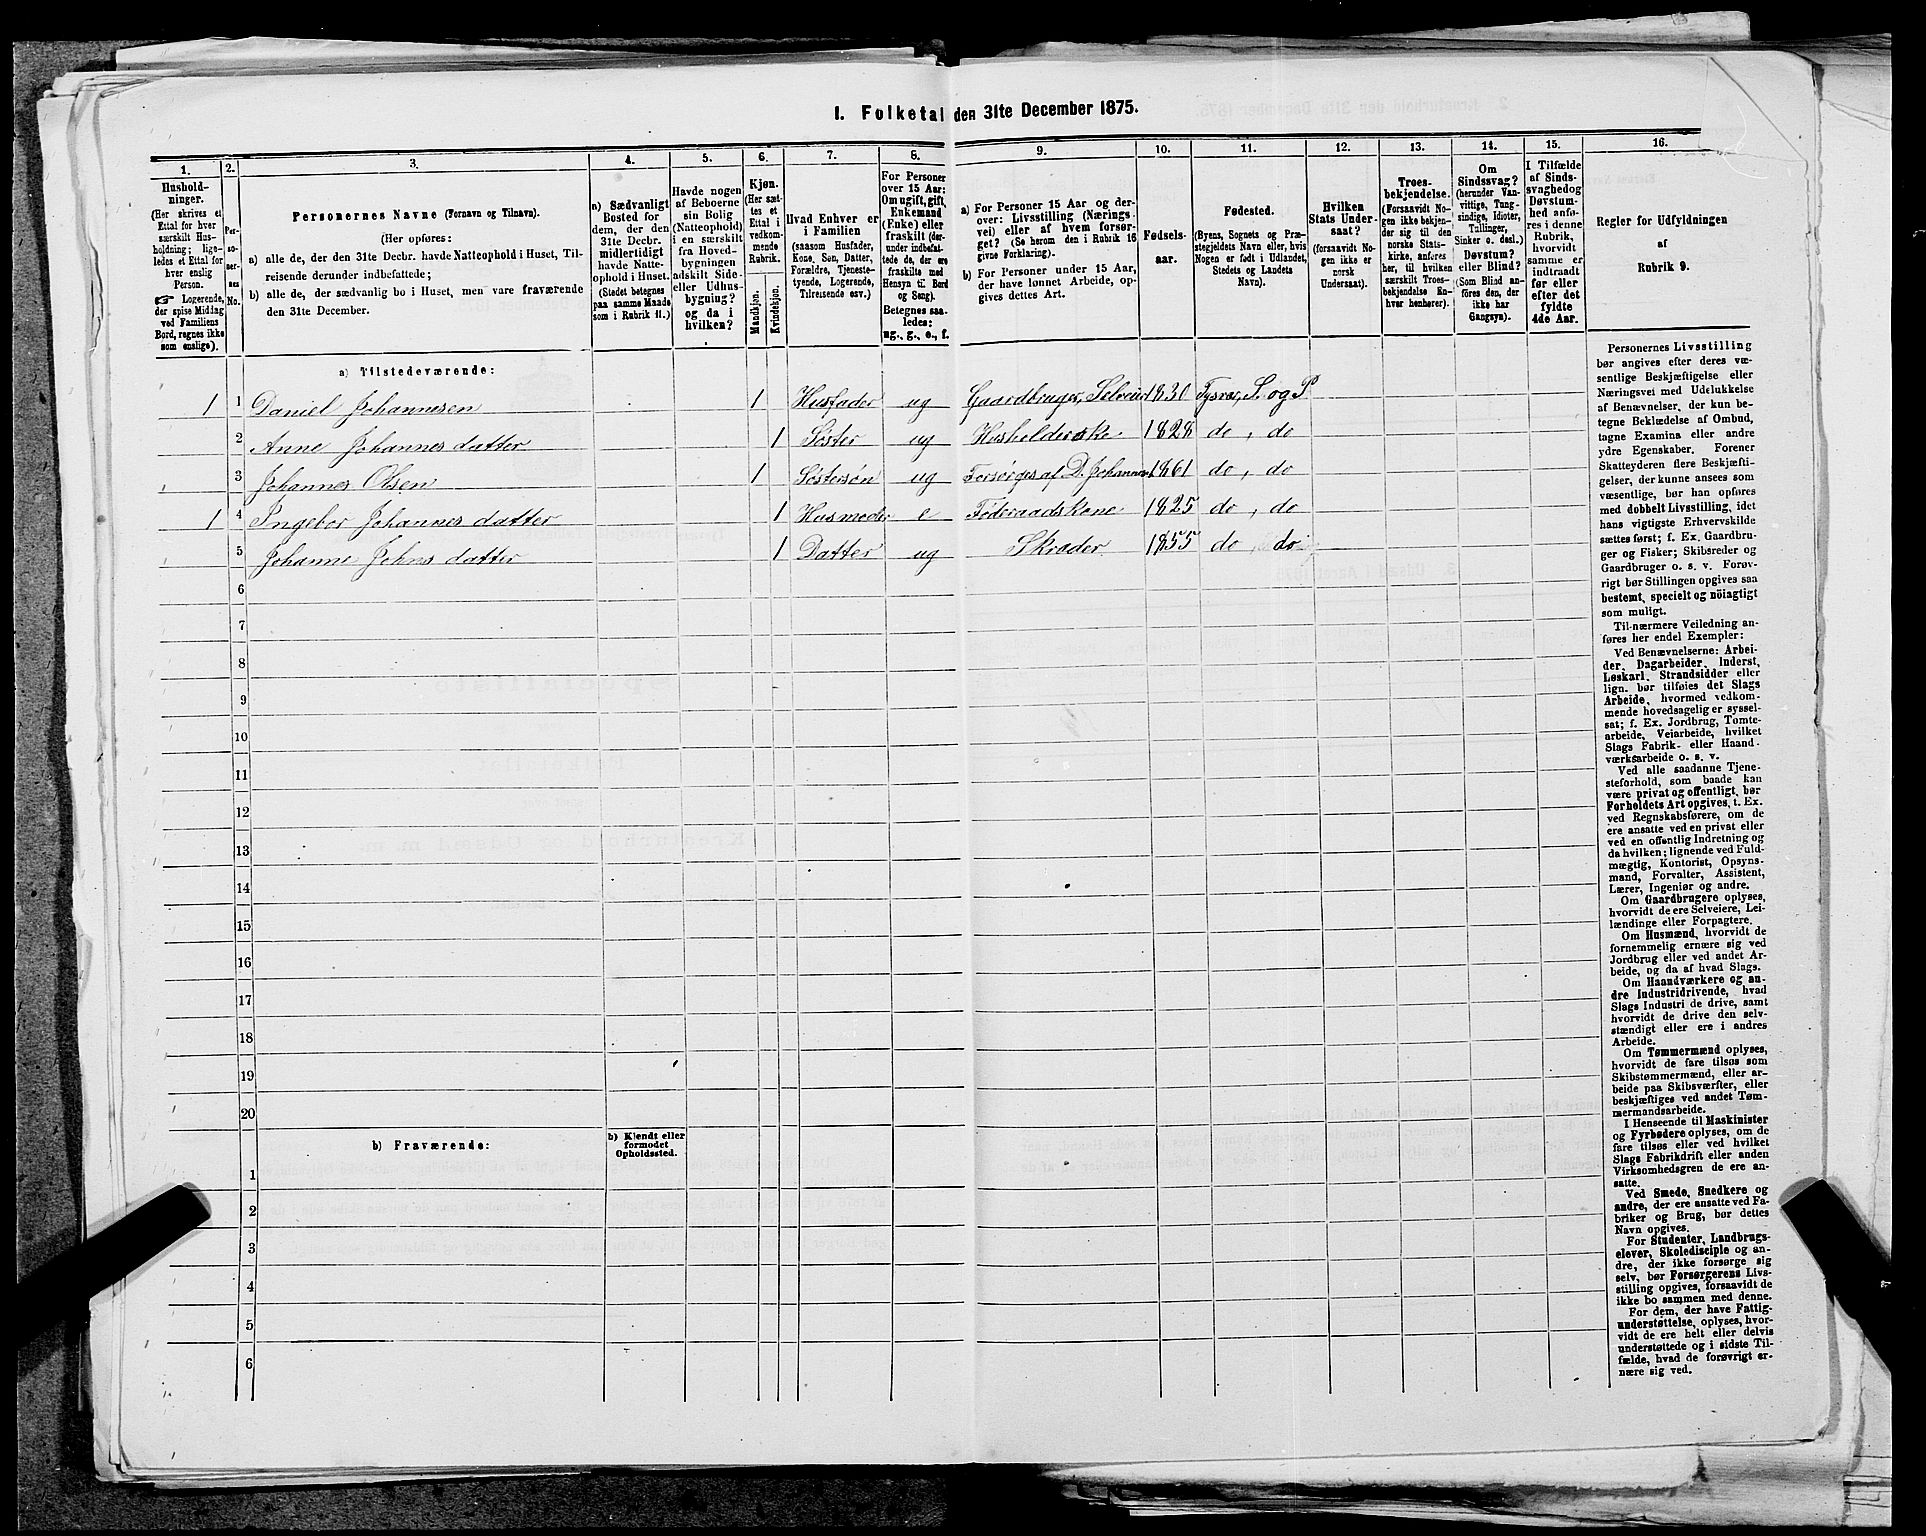 I. Folketal den 31te December 1875.
1. 2. 3. 4. 5. 6. 7. 8. 9. 10. 11. 12. 13. 14. 15. 16.
Hushold-
ninger.
(Her skrives et
Ettal for hver
særskilt Hus-
holdning; lige-
ledes et Ettal for
hver enslig
Person.
☛ Logerende,
der spise Middag
ved Familiens
Bord, regnes ikke
som enslige).
Per-
so-
ner-
nes
No.
Personernes Navne (Fornavn og Tilnavn).
(Her opføres:
a) alle de, der den 31te Decbr. havde Natteophold i Huset, Til-
reisende derunder indbefattede;
b) alle de, der sædvanlig bo i Huset, men vare fraværende
den 31te December.
a) Sædvanligt
Bosted for
dem, der den
31te Decbr.
midlertidigt
havde Natte-
ophold i Huset.
(Stedet betegnes
paa samme Maade
som i Rubrik 11.)
Havde nogen
af Beboerne
sin Bolig
(Natteophold)
i en særskilt
fra Hoved-
bygningen
adskilt Side-
eller Udhus-
bygning?
og da i
hvilken?
Kjøn.
(Her sæt-
tes et
Ettal i
vedkom-
mende
Rubrik.
Mandkjøn.
Kvindekjøn.
Hvad Enhver er
i Familien
(saasom Husfader,
Kone, Søn, Datter,
Forældre, Tjeneste-
tyende, Logerende,
Tilreisende osv.)
For Personer
over 15 Aar:
Om ugift, gift,
Enkemand
(Enke) eller
fraskilt (der-
under indbefat-
tede de, der ere
fraskilte med
Hensyn til Bord
og Seng).
Betegnes saa-
ledes:
ug., g., e., f.
a) For Personer 15 Aar og der-
over: Livsstilling (Nærings-
vei) eller af hvem forsør-
get? (Se herom den i Rubrik 16
givne Forklaring).
b) For Personer under 15 Aar,
der have lønnet Arbeide, op-
gives dettes Art.
Fødsels-
aar.
Fødested.
(Byens, Sognets og Præ-
stegjeldets Navn eller, hvis
Nogen er født i Udlandet,
Stedets og Landets
Navn).
Hvilken
Stats Under-
saat?
(forsaavidt No-
gen ikke er
norsk
Undersaat).
Troes-
bekjendelse.
(Forsaavidt No-
gen ikke bekjen-
der sig til den
norske Stats-
kirke, anføres
her, til hvilken
særskilt Troes-
bekjendelse En-
hver henhører).
Om
Sindssvag?
(herunder Van-
vittige, Tung-
sindige, Idioter,
Tullinger,
Sinker o. desl.)
Døvstum?
eller Blind?
(Som Blind an-
føres den, der
ikke har
Gangsyn).
I Tilfælde
af Sinds-
svaghed og
Døvstum-
hed anfø-
res i denne
Rubrik,
hvorvidt
samme er
indtraadt
før eller
efter det
fyldte
4de Aar.
Regler for Udfyldningen
af
Rubrik 9.
a) Tilstedeværende:
1 1 Daniel Johannesen 1 Husfader ug Gaardbruger, Selveier 1830 Tysvær, S. og P
2 Anne Johannesdatter 1 Søster ug Husholderske 1828 do, do
3 Johannes Olsen 1 Søstersøn ug Forsørges af D. Johannes 1861 do, do
1 4 Ingebor Johannesdatter 1 Husmoder e Føderaadskone 1825 do, do
5 Johanne Johnsdatter 1 Datter ug Skræder 1855 do do
6
7
8
9
10
11
12
13
14
15
16
17
18
19
20
b) Fraværende:
b) Kjendt eller
formodet
Opholdssted.
1
2
3
4
5
6
Personernes Livsstilling
bør angives efter deres væ-
sentlige Beskjæftigelse eller
Næringsvei med Udelukkelse
af Benævnelser, der kun be-
tegne Beklædelse af Ombud,
tagne Examina eller andre
ydre Egenskaber. Forener
Skatteyderen flere Beskjæfti-
gelser, der kunne ansees som
væsentlige, bør han opføres
med dobbelt Livsstilling, idet
hans vigtigste Erhvervskilde
sættes først; f. Ex. Gaardbru-
ger og Fisker; Skibsreder og
Gaardbruger o. s. v. Forøv-
rigt bør Stillingen opgives saa
bestemt, specielt og nöiagtigt
som muligt.
Til nærmere Veiledning an-
føres her endel Exempler:
Ved Benævnelserne: Arbei-
der, Dagarbeider, Inderst,
Løskarl, Strandsidder eller
lign. bør tilføies det Slags
Arbeide, hvormed vedkom-
mende hovedsagelig er syssel-
sat; f. Ex. Jordbrug, Tomte-
arbeide, Veiarbeide, hvilket
Slags Fabrik- eller Haand-
værksarbeide o. s. v.
Ved alle saadanne Tjene-
steforhold, som baade kan
være privat og offentligt, bør
Forholdets Art opgives, t. Ex.
ved Regnskabsførere, om de
ere ansatte ved en privat eller
ved en offentlig Indretning og
da hvilken; lignende ved Fuld-
mægtig, Kontorist, Opsyns-
mand, Forvalter, Assistent,
Lærer, Ingeniør og andre.
Om Gaardbrugere oplyses,
hvorvidt de ere Selveiere, Lei-
lændinge eller Forpagtere.
Om Husmænd, hvorvidt de
fornemmelig ernære sig ved
Jordbrug eller ved andet Ar-
beide, og da af hvad Slags.
Om Haandværkere og an-
dre Industridrivende, hvad
Slags Industri de drive, samt
hvorvidt de drive den selv-
stændigt eller ere i andres
Arbeide.
Om Tømmermænd oplyses,
hvorvidt de fare tilsøs som
Skibstømmermænd, eller ar-
beide paa Skibsværfter, eller
beskjæftiges ved andet Tøm-
mermandsarbeide.
I Henseende til Maskinister
og Fyrbødere oplyses, om de
fare tilsøs eller ved hvilket
Slags Fabrikdrift eller anden
Virksomhedsgren de ere an-
satte.
Ved Smede, Snedkere og
andre, der ere ansatte ved Fa-
briker og Brug, bør dettes
Navn opgives.
For Studenter, Landbrugs-
elever, Skoledisciple og an-
dre, der ikke forsørge sig
selv, bør Forsørgerens Livs-
stilling opgives, forsaavidt de
ikke bo sammen med denne.
For dem, der have Fattig-
understøttelse, oplyses, hvor-
vidt de ere helt eller delvis
understøttede og i sidste Til-
fælde, hvad de forøvrigt er-
nære sig ved.